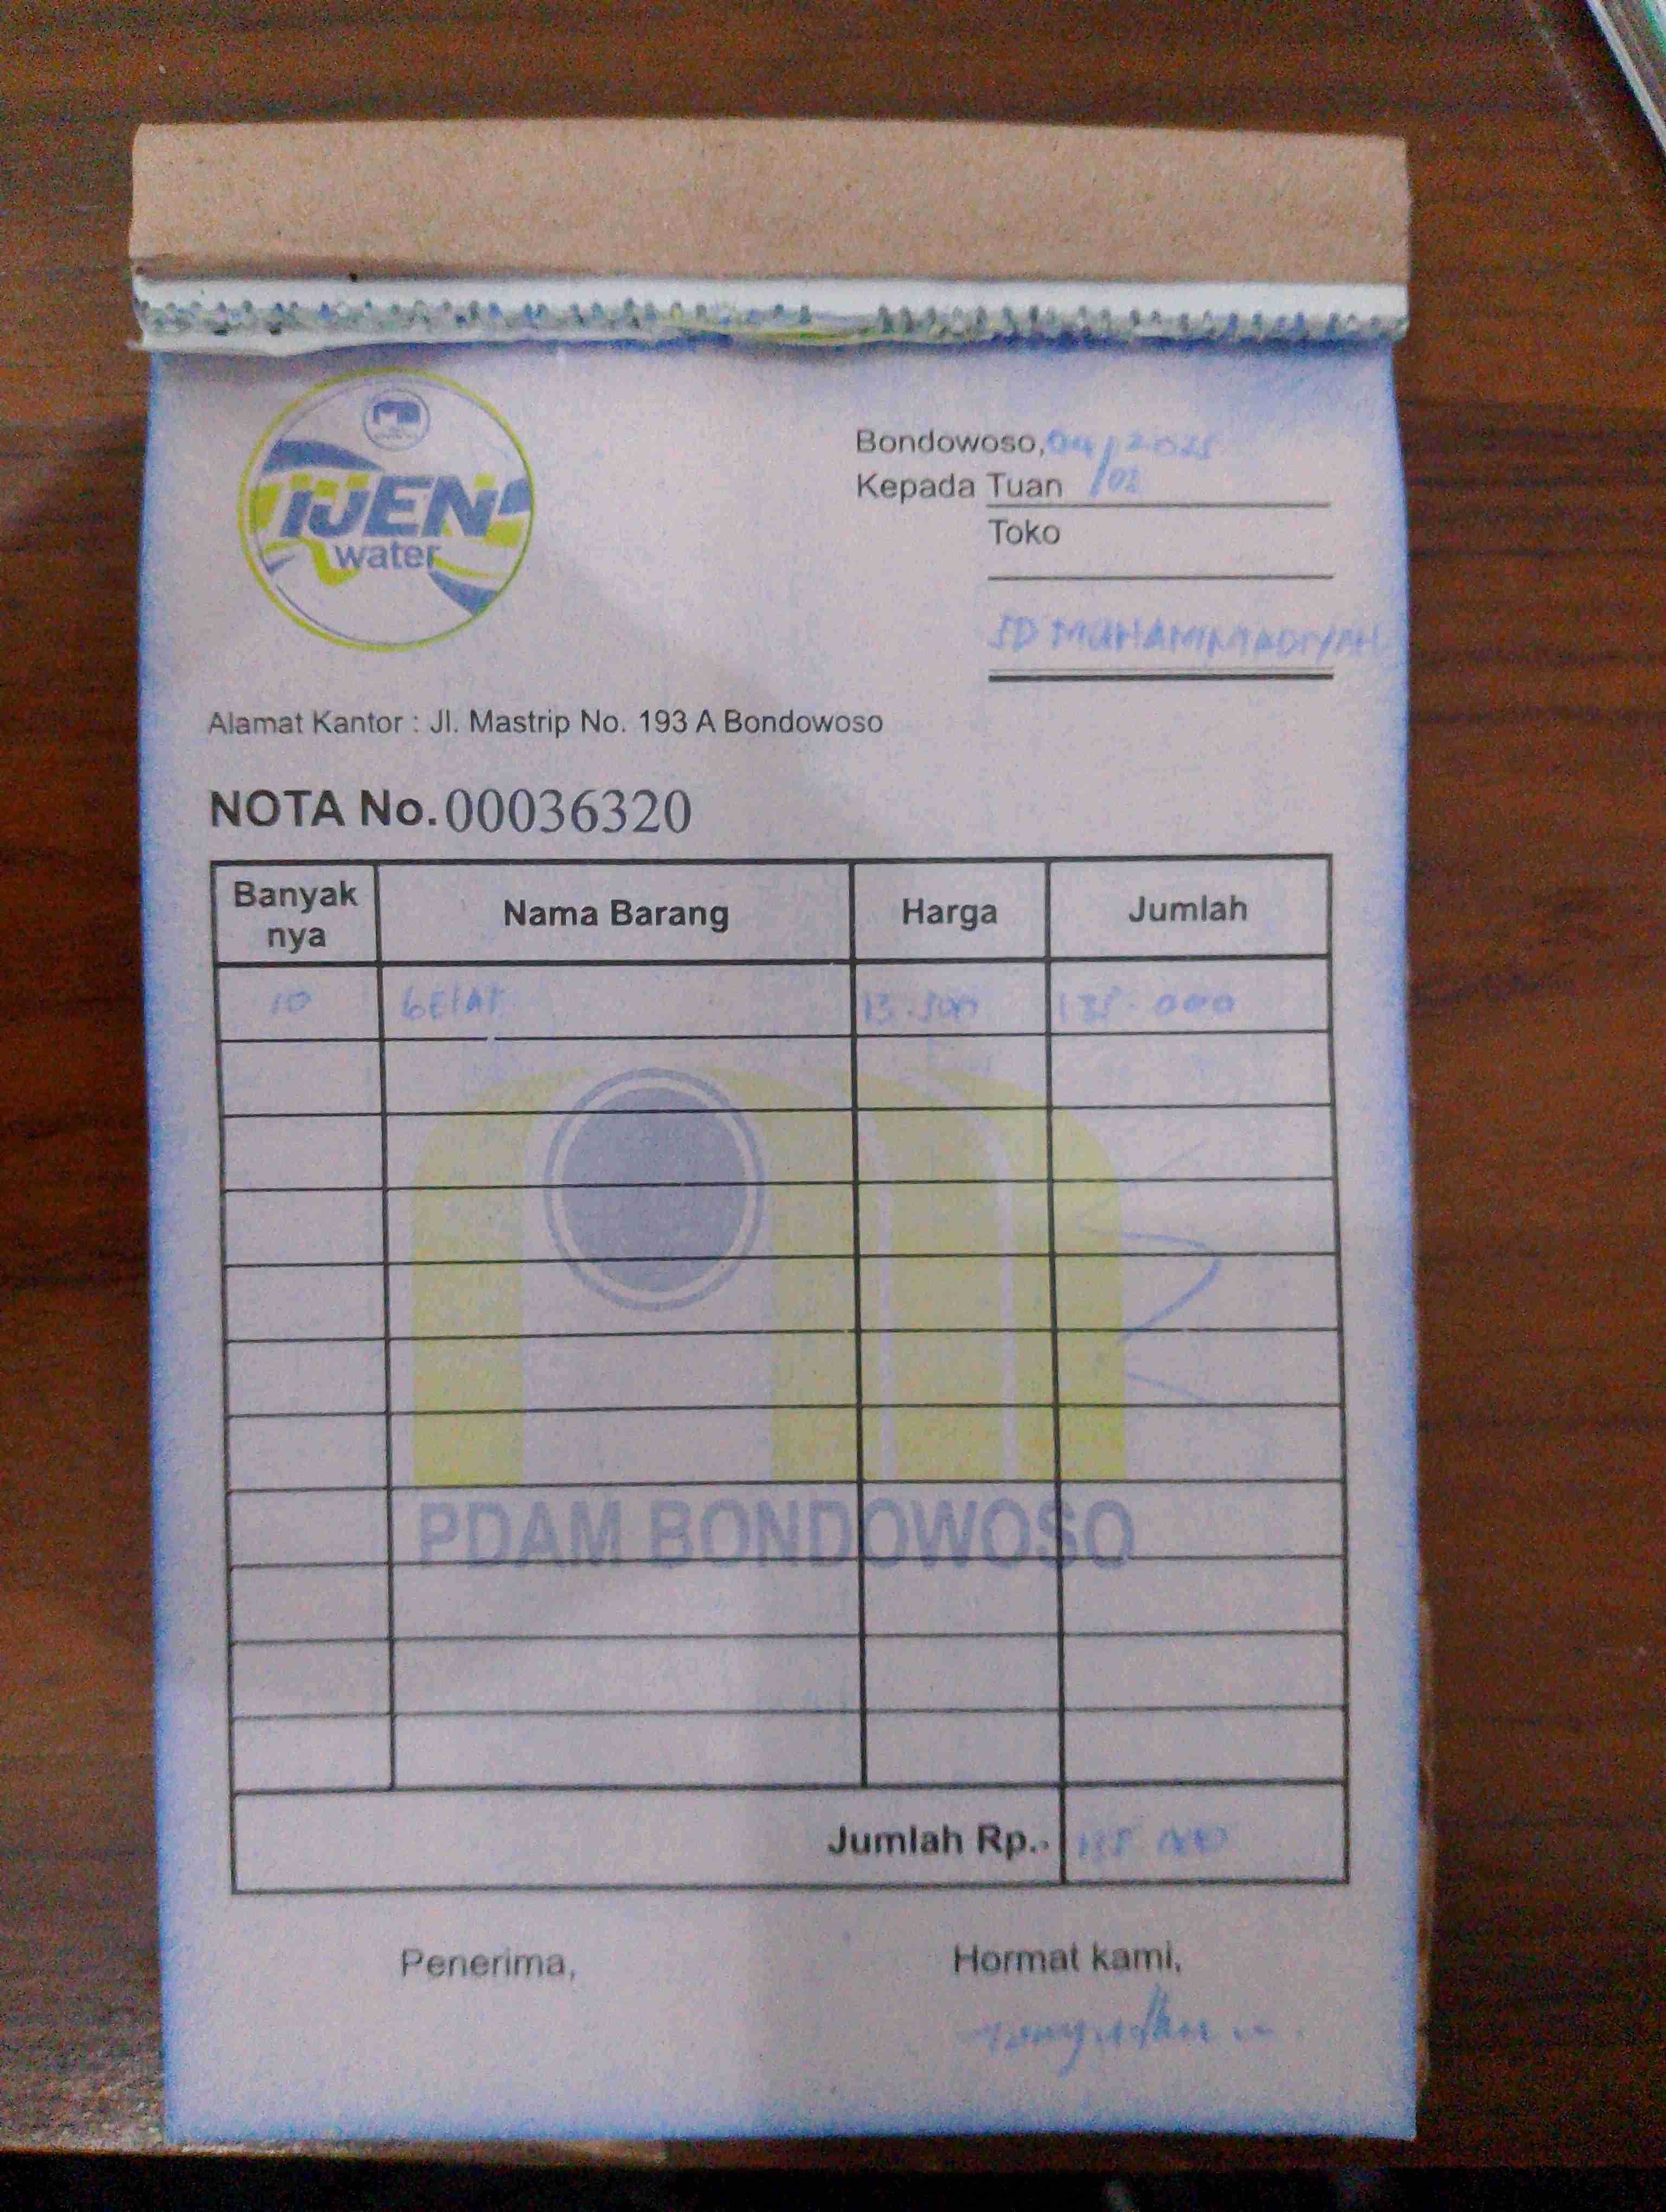 IJEN
water
Bondowoso, 04/02 2025
Kepada Tuan
Toko
SD MUHAMMADIYAH
Alamat Kantor : Jl. Mastrip No. 193 A Bondowoso
NOTA No. 00036320
Banyak nya Nama Barang Harga Jumlah
10 GElAS 13.500 135.000
PDAM BONDOWOSO
Jumlah Rp.- 135.000
Penerima, Hormat kami,